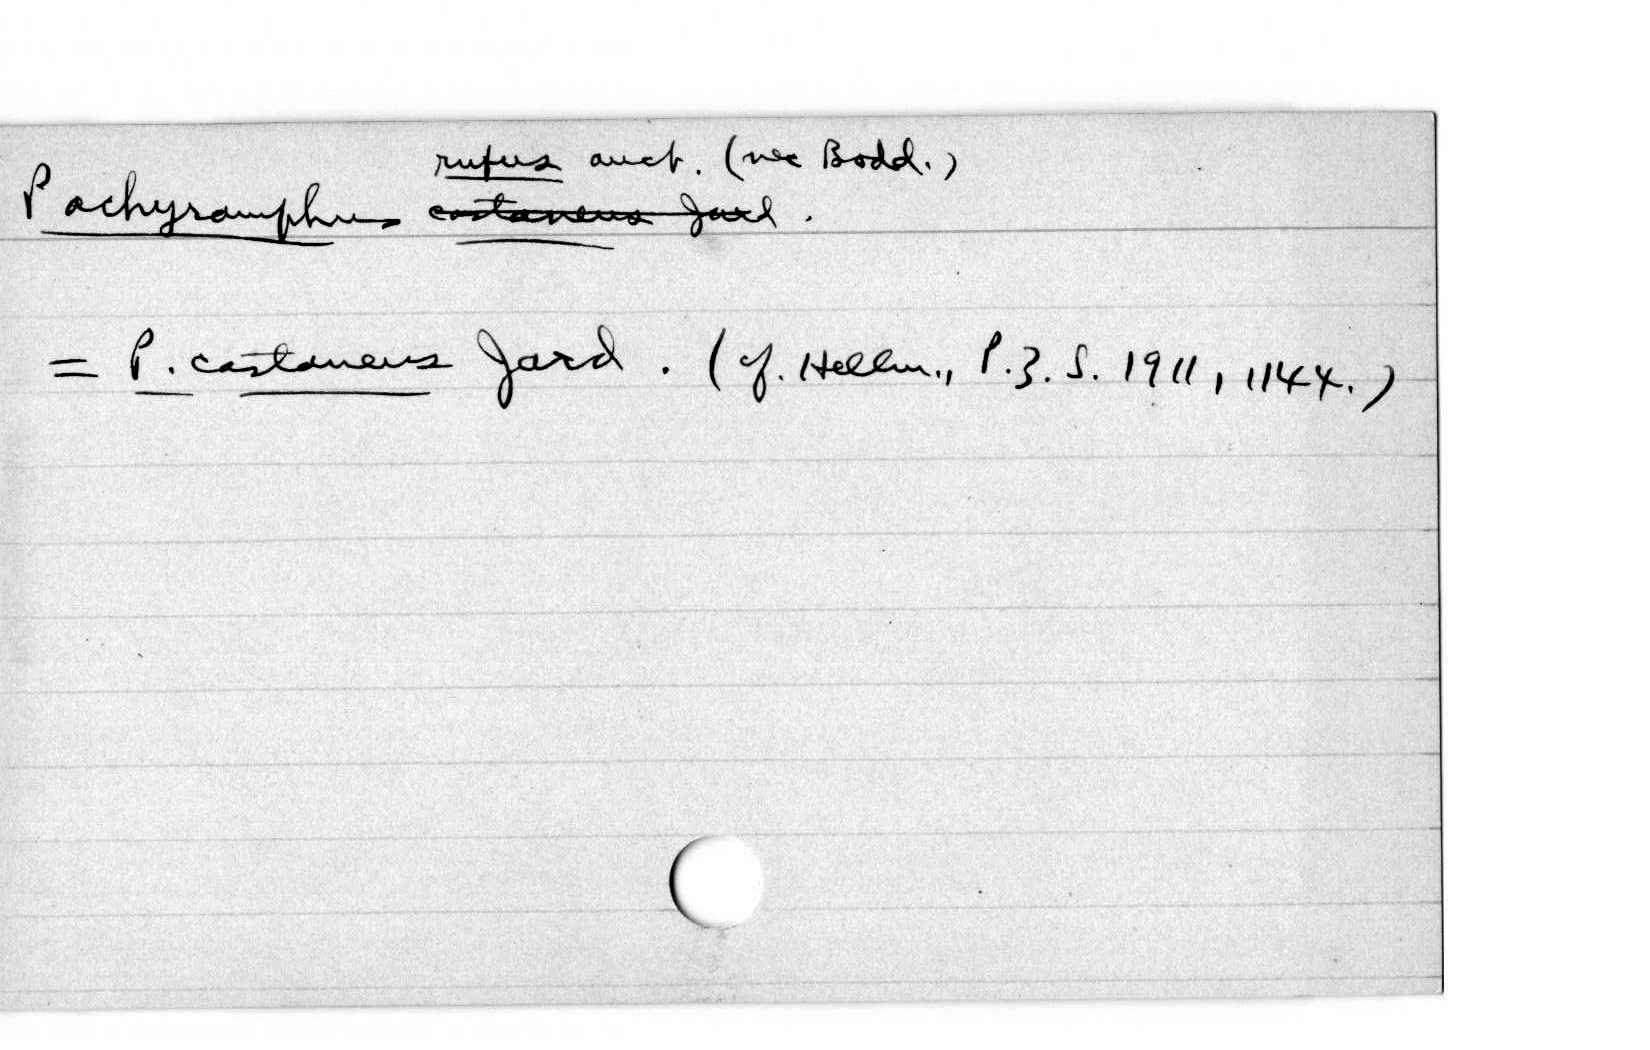 rufus auct. (nec Bodd.)
Pachyramphus castaneus Jard.
= P. castaneus Jard. (cf. Hellm., P.Z.S. 1911, 1144.)